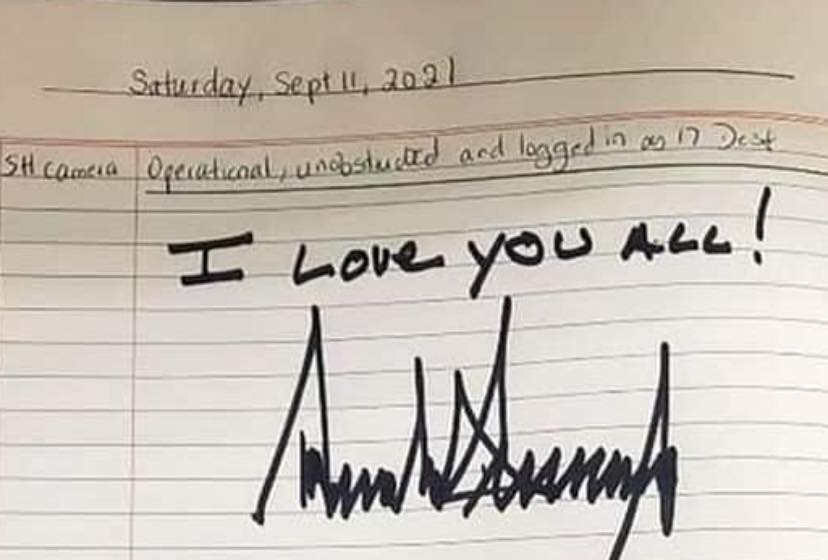 Saturday, Sept 11, 2021
SH camera Operational, unobstructed and logged in as 17 Desk
I LOVE YOU ALL!